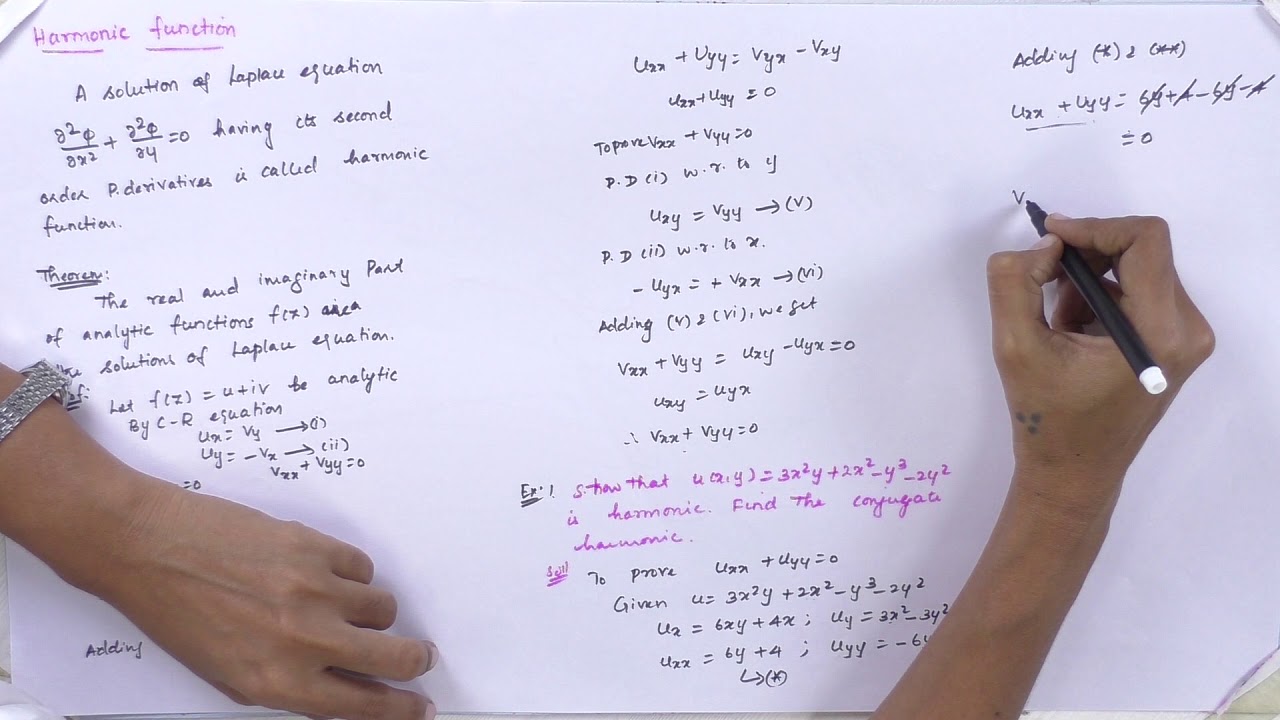 Harmonic function
A solution of Laplace equation
∂²φ/∂x² + ∂²φ/∂y = 0 having its second
order P.derivatives is called harmonic
function.
Theorem:
The real and imaginary Part
of analytic functions f(z)
solutions of Laplace equation.
Let f(z) = u+iv be analytic
By C-R equation
ux = Vy → (i)
uy = -Vx → (ii)
Vxx + Vyy = 0
=0
Adding
uxx + uyy = Vyx - Vxy
uxx + uyy = 0
To prove Vxx + Vyy = 0
P.D (i) w.r. to y
uxy = Vyy → (V)
P.D (ii) w.r. to x.
- uyx = + Vxx → (Vi)
Adding (V) & (Vi), we get
Vxx + Vyy = uxy - uyx = 0
uxy = uyx
∴ Vxx + Vyy = 0
Ex: 1. S.how that u(x,y) = 3x²y + 2x² - y³ - 2y²
is harmonic. Find the conjugate
harmonic.
Soln
To prove uxx + uyy = 0
Given u = 3x²y + 2x² - y³ - 2y²
ux = 6xy + 4x ; uy = 3x² - 3y²
uxx = 6y + 4 ; uyy = -6y
↳ (*)
Adding (*) & (**)
uxx + uyy = 6y + 4 - 6y - 4
= 0
V